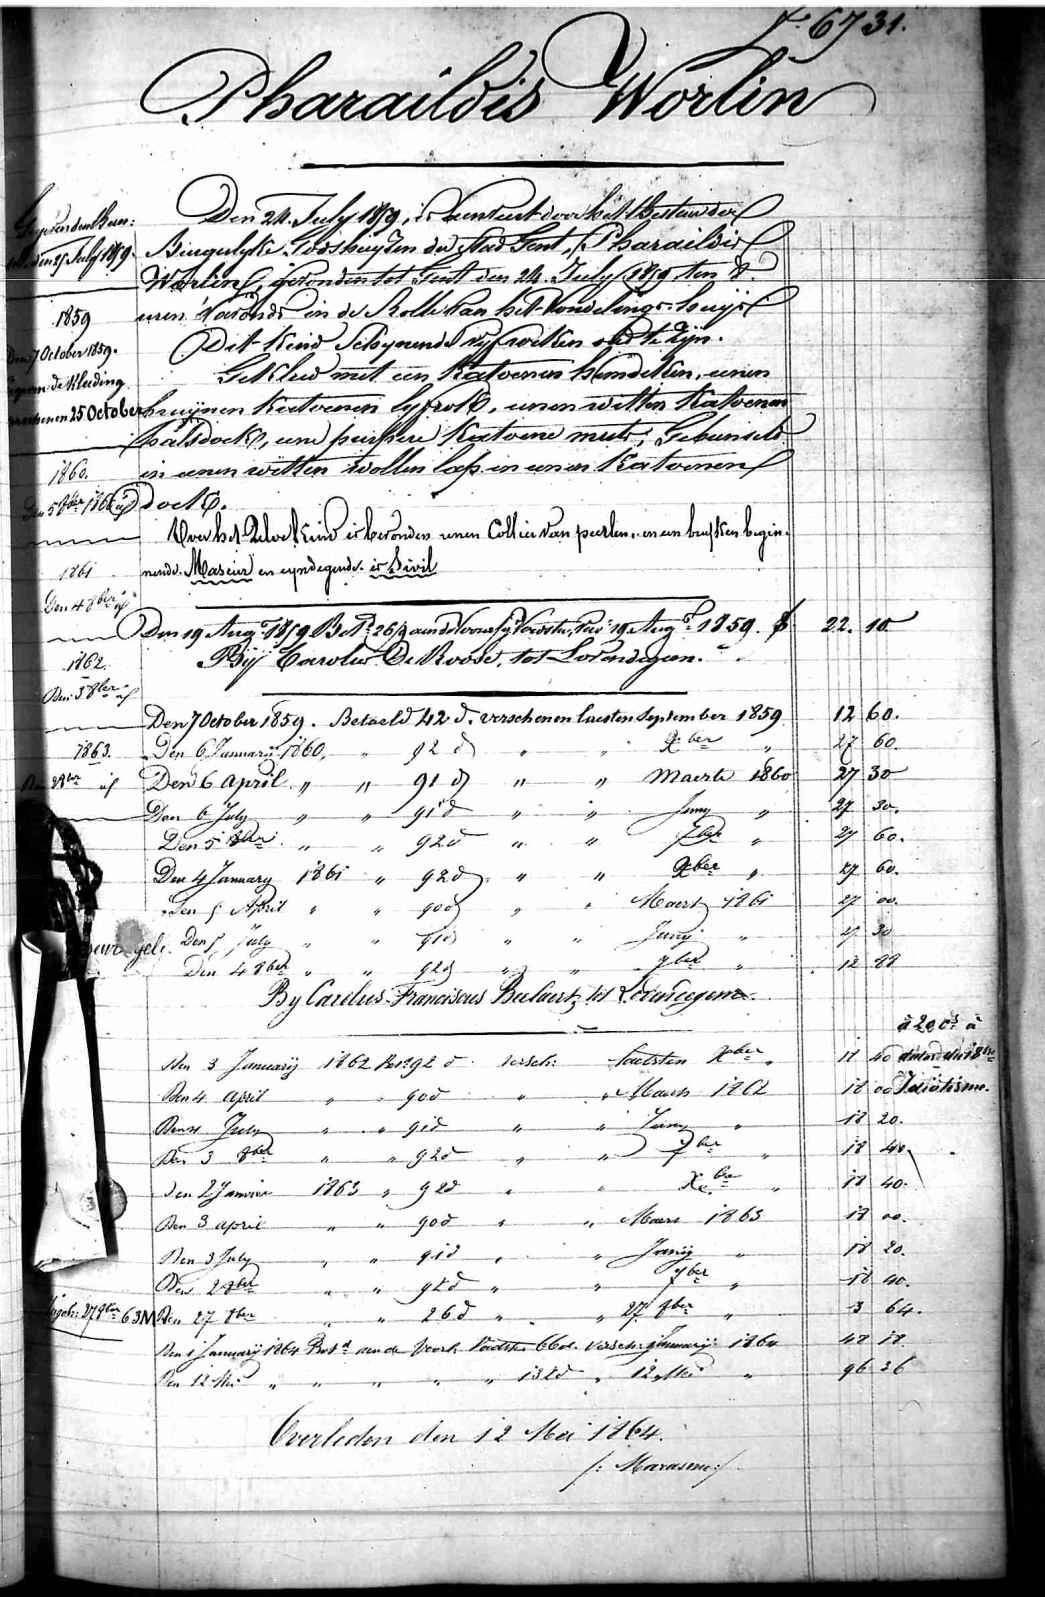 Nr 6731.
Pharaildis Worlin
Den 24. July 1859, is aenveert door het Bestuer der
Burgerlyke Godshuyzen der Stad Gent, Pharaildis
Worlin, gevonden tot Gent den 24. July 1859 ten
uren 's avonds in de Rolle van het Vondelings-huys
Dit kind schynende vyf weken oud te zyn.
Gekleed met een katoenen hemdeken, eenen
bruynen katoenen lyfrok, eenen witten katoenen
halsdoek, eene purpere katoene muts; Gebunseld
in eenen witten wollen lap en eenen katoenen
doek.
Over het zelve kind is bevonden eenen Collier van peerlen, en een briefken begin-
nende Maseur en eyndigende is Civil
1859
Den 7 October 1859.
de kleeding
25 October
1860.
Den 5 8ber 1860
1861
Den 4 8ber
1862.
Den 3 8ber
1863.
Den 19 Augt 1859 Bet. aen de Voorsz. Voedster, 19 Augt 1859. 22. 10
Bij Carolus De Roose, tot Lovendegem.
Den 7 October 1859. Betaeld 42 d. verschenen laesten September 1859 12 60.
Den 6 January 1860, " 92 d " " Xber " 27 60
Den 6 April " " 91 d " " Maerte 1860 27 30
Den 6 July " " 91 d " " Juny " 27 30.
Den 5 8ber " " 92 d " " 7ber " 27 60.
Den 4 January 1861 " 92 d " " Xber " 27 60.
Den 5 April " " 90 d " " Maert 1861 27 00.
Den 5 July " " 91 d " " Juny " 27 30
Den 4 8ber " " 92 d " " 7ber " 12 88
By Carolus Franciscus Beelaert, tot Lovendegem.
à 20 cs à
Den 3 Januarij 1862 Bet. 92 d versch: laetsten Xber " 18 40
Idiotisme.
Den 4 April " " 90 d " " Maerts 1862 18 00
Den 4 July " " 91 d " " Juny " 18 20.
Den 3 8ber " " 92 d " " 7ber " 18 40.
Den 2 Janvier 1863 " 92 d " " Xbre " 18 40.
Den 3 april " " 90 d " " Maers 1863 18 00.
Den 3 July " " 91 d " " Junij " 18 20.
Den 2 8ber " " 92 d " " 7ber " 18 40.
Den 27 8ber " " 26 d " " 27 8ber " 3 64.
Den 1 Januarij 1864 Bet. aen de Voorsz. Voedster 66 d. versch: 1 Januarij 1864 48 18.
Den 12 Mei " " " " " 132 d " 12 Mei " 96 36
Overleden den 12 Mei 1864.
/: Marasme :/